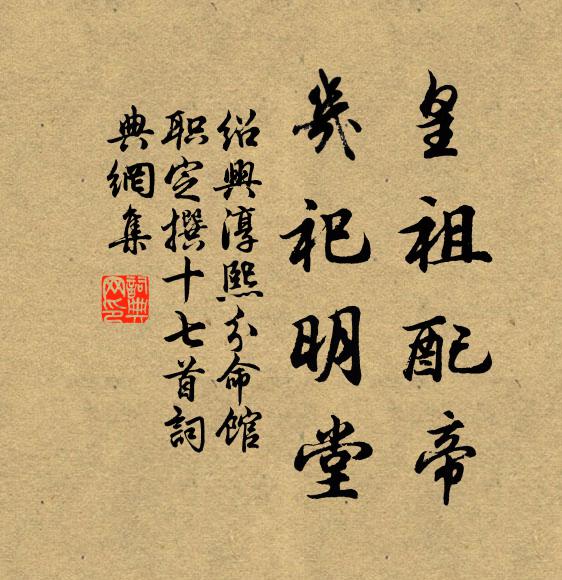 皇祖配帝
歲祀明堂
紹興淳熙分命館
职定撰十七首詞
典網集
詞典
网印